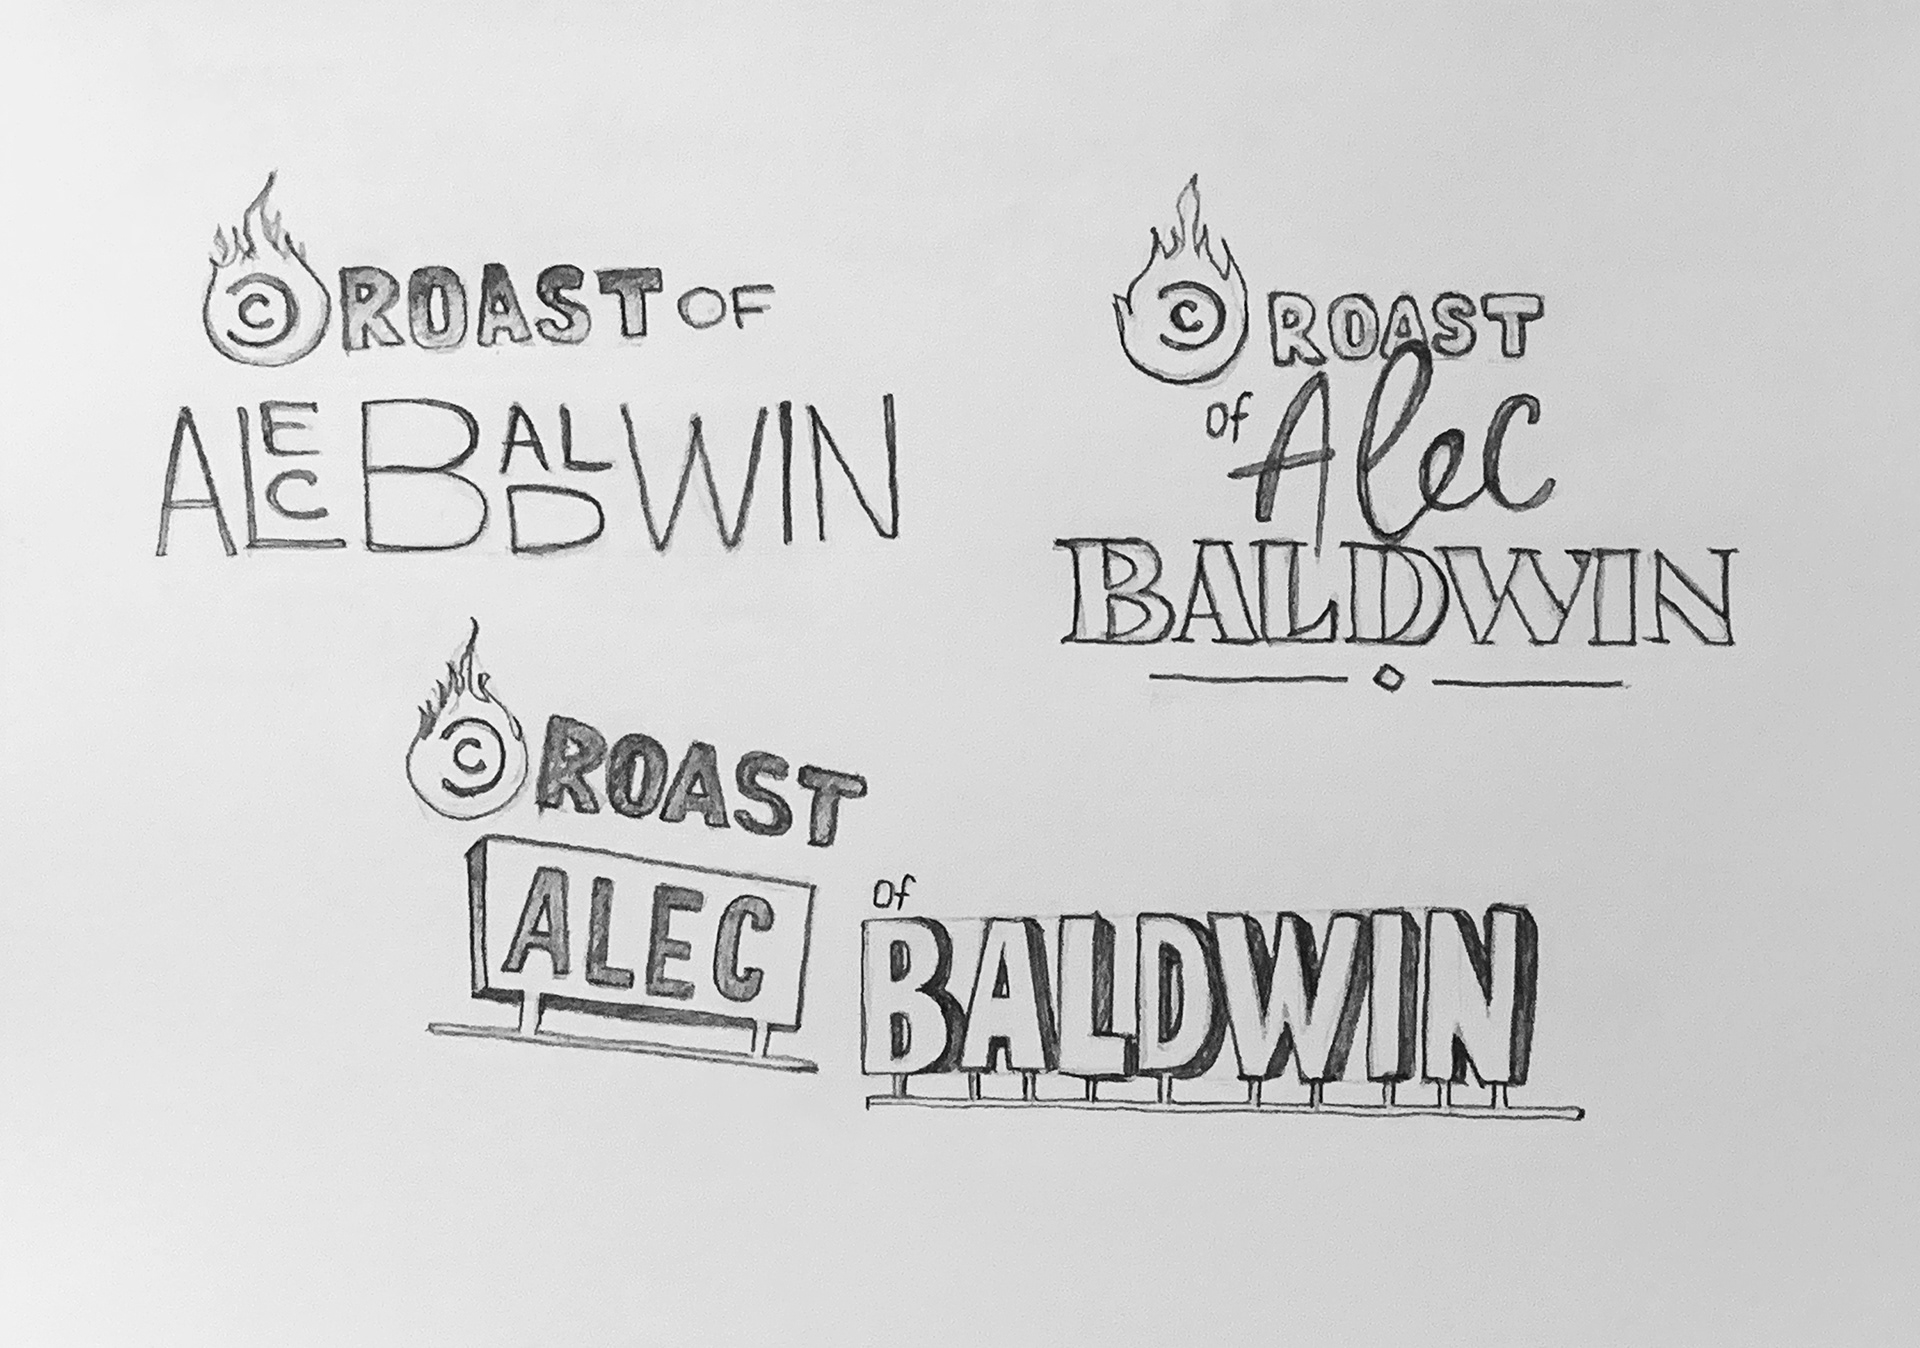 © ROAST OF
ALEC BALDWIN
© ROAST
of Alec
BALDWIN
© ROAST
ALEC
of
BALDWIN